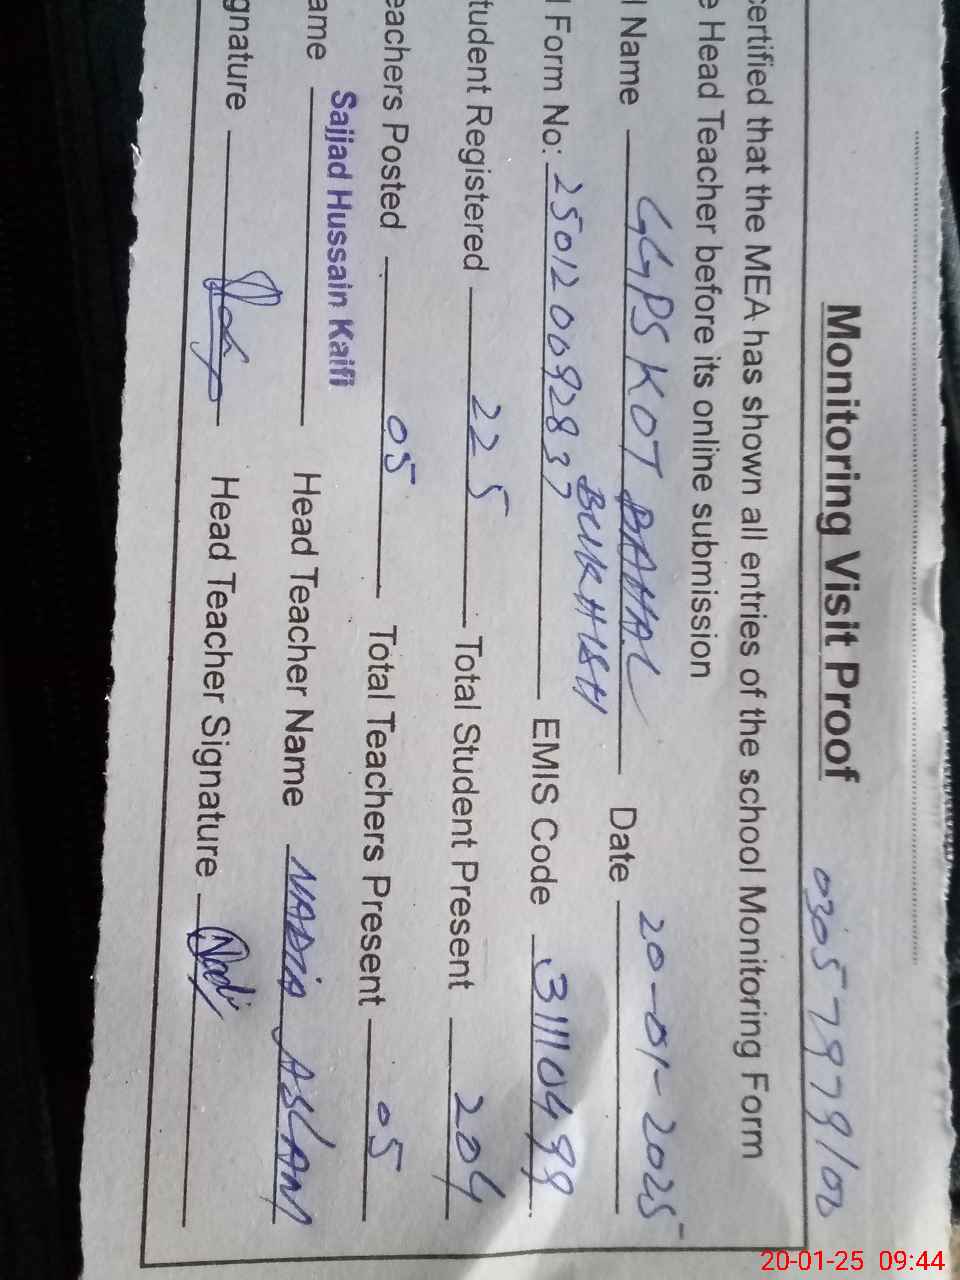 Monitoring Visit Proof
certified that the MEA has shown all entries of the school Monitoring Form
e Head Teacher before its online submission
l Name GGPS KOT BAHAL BUKHISH Date 20-01-2025
l Form No: 250120092837 EMIS Code 31110499
tudent Registered 225 Total Student Present 204
eachers Posted 05 Total Teachers Present 05
ame Sajjad Hussain Kaifi Head Teacher Name NADIA ASLAM
gnature Head Teacher Signature
20-01-25 09:44